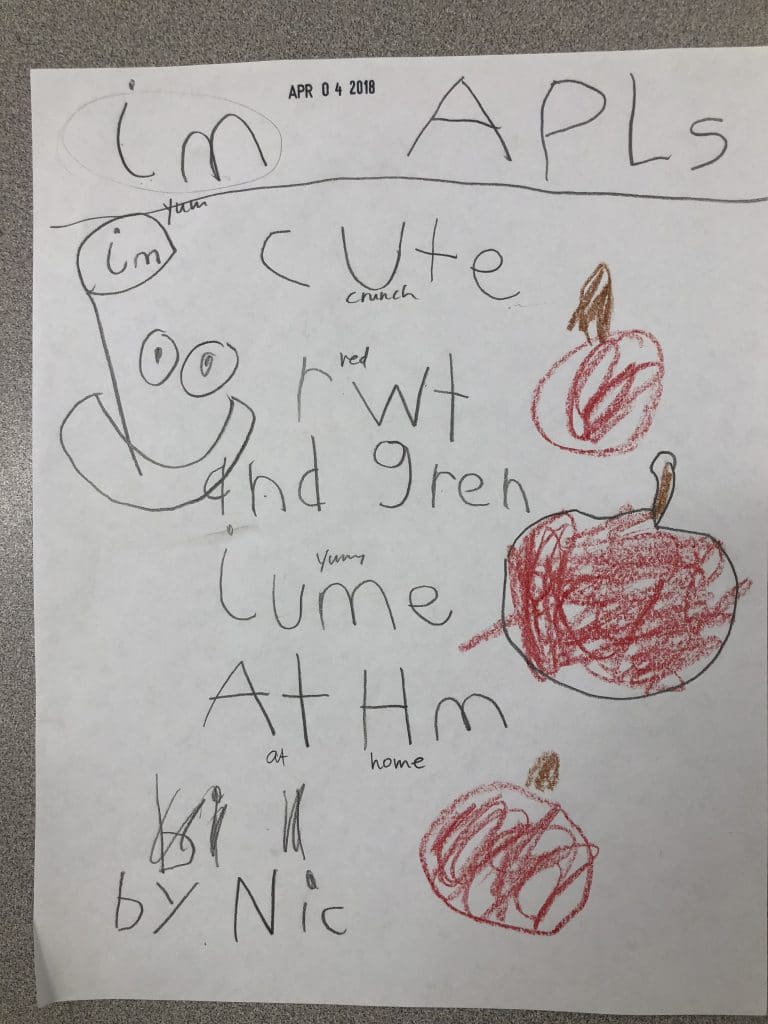 APR 04 2018
im APLs
yum
im cute
crunch
red
rwt
and gren
yumy
iume
At Hm
at home
by Nic